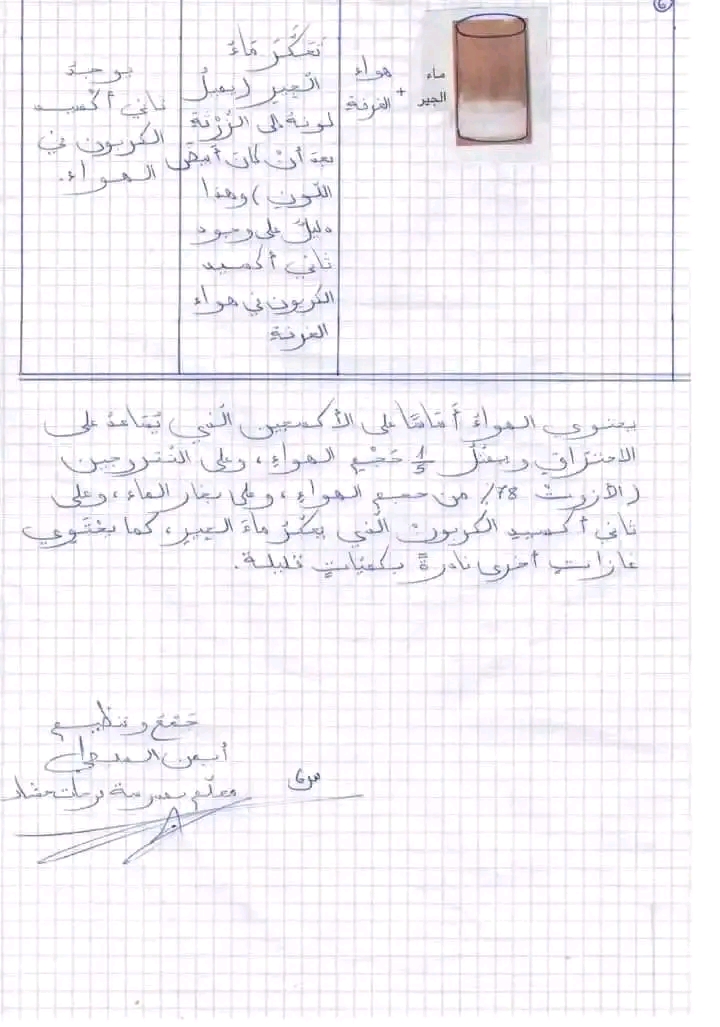 6
ماء
الجير
+
هواء
الغرفة
تَعَكَّرَ مَاءُ
الْجِيرِ (يميلُ
لونهُ إلى الزُّرْقَةِ
بعد أنْ كانَ أبيضَ
اللّونِ) وهذا
دليلٌ على وجود
ثاني أكسيد
الكربون في هواء
الغرفة
يوجدُ
ثاني أكْسيد
الكربون في
الهواء.
يحتوي الهواءُ أَسَاسًا على الأكسجين الّذي يُسَاعدُ على
الاحتراقِ ويمثّلُ 1/5 حَجْمِ الهواءِ، وعلى النّتروجين
(الأزوتْ 78٪ من حجم الهواءِ، وعلى بخار الماء، وعلى
ثاني أكسيدِ الكربونْ الّذي يعكّرُ ماءَ الجيرِ، كما يحْتَوِي
غازاتٍ أخرى نادرةً بكميّاتٍ قليلة.
جَمْعُ وتنظيم
أيمن
معلّم بمدرسة فرحات حشاد
ص6